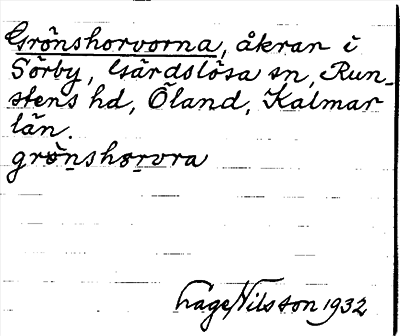 Grönshorvorna, åkrar i
Sörby, Gärdslösa sn, Run-
stens hd, Öland, Kalmar
län.
grönshorvra
Åge Nilsson 1932